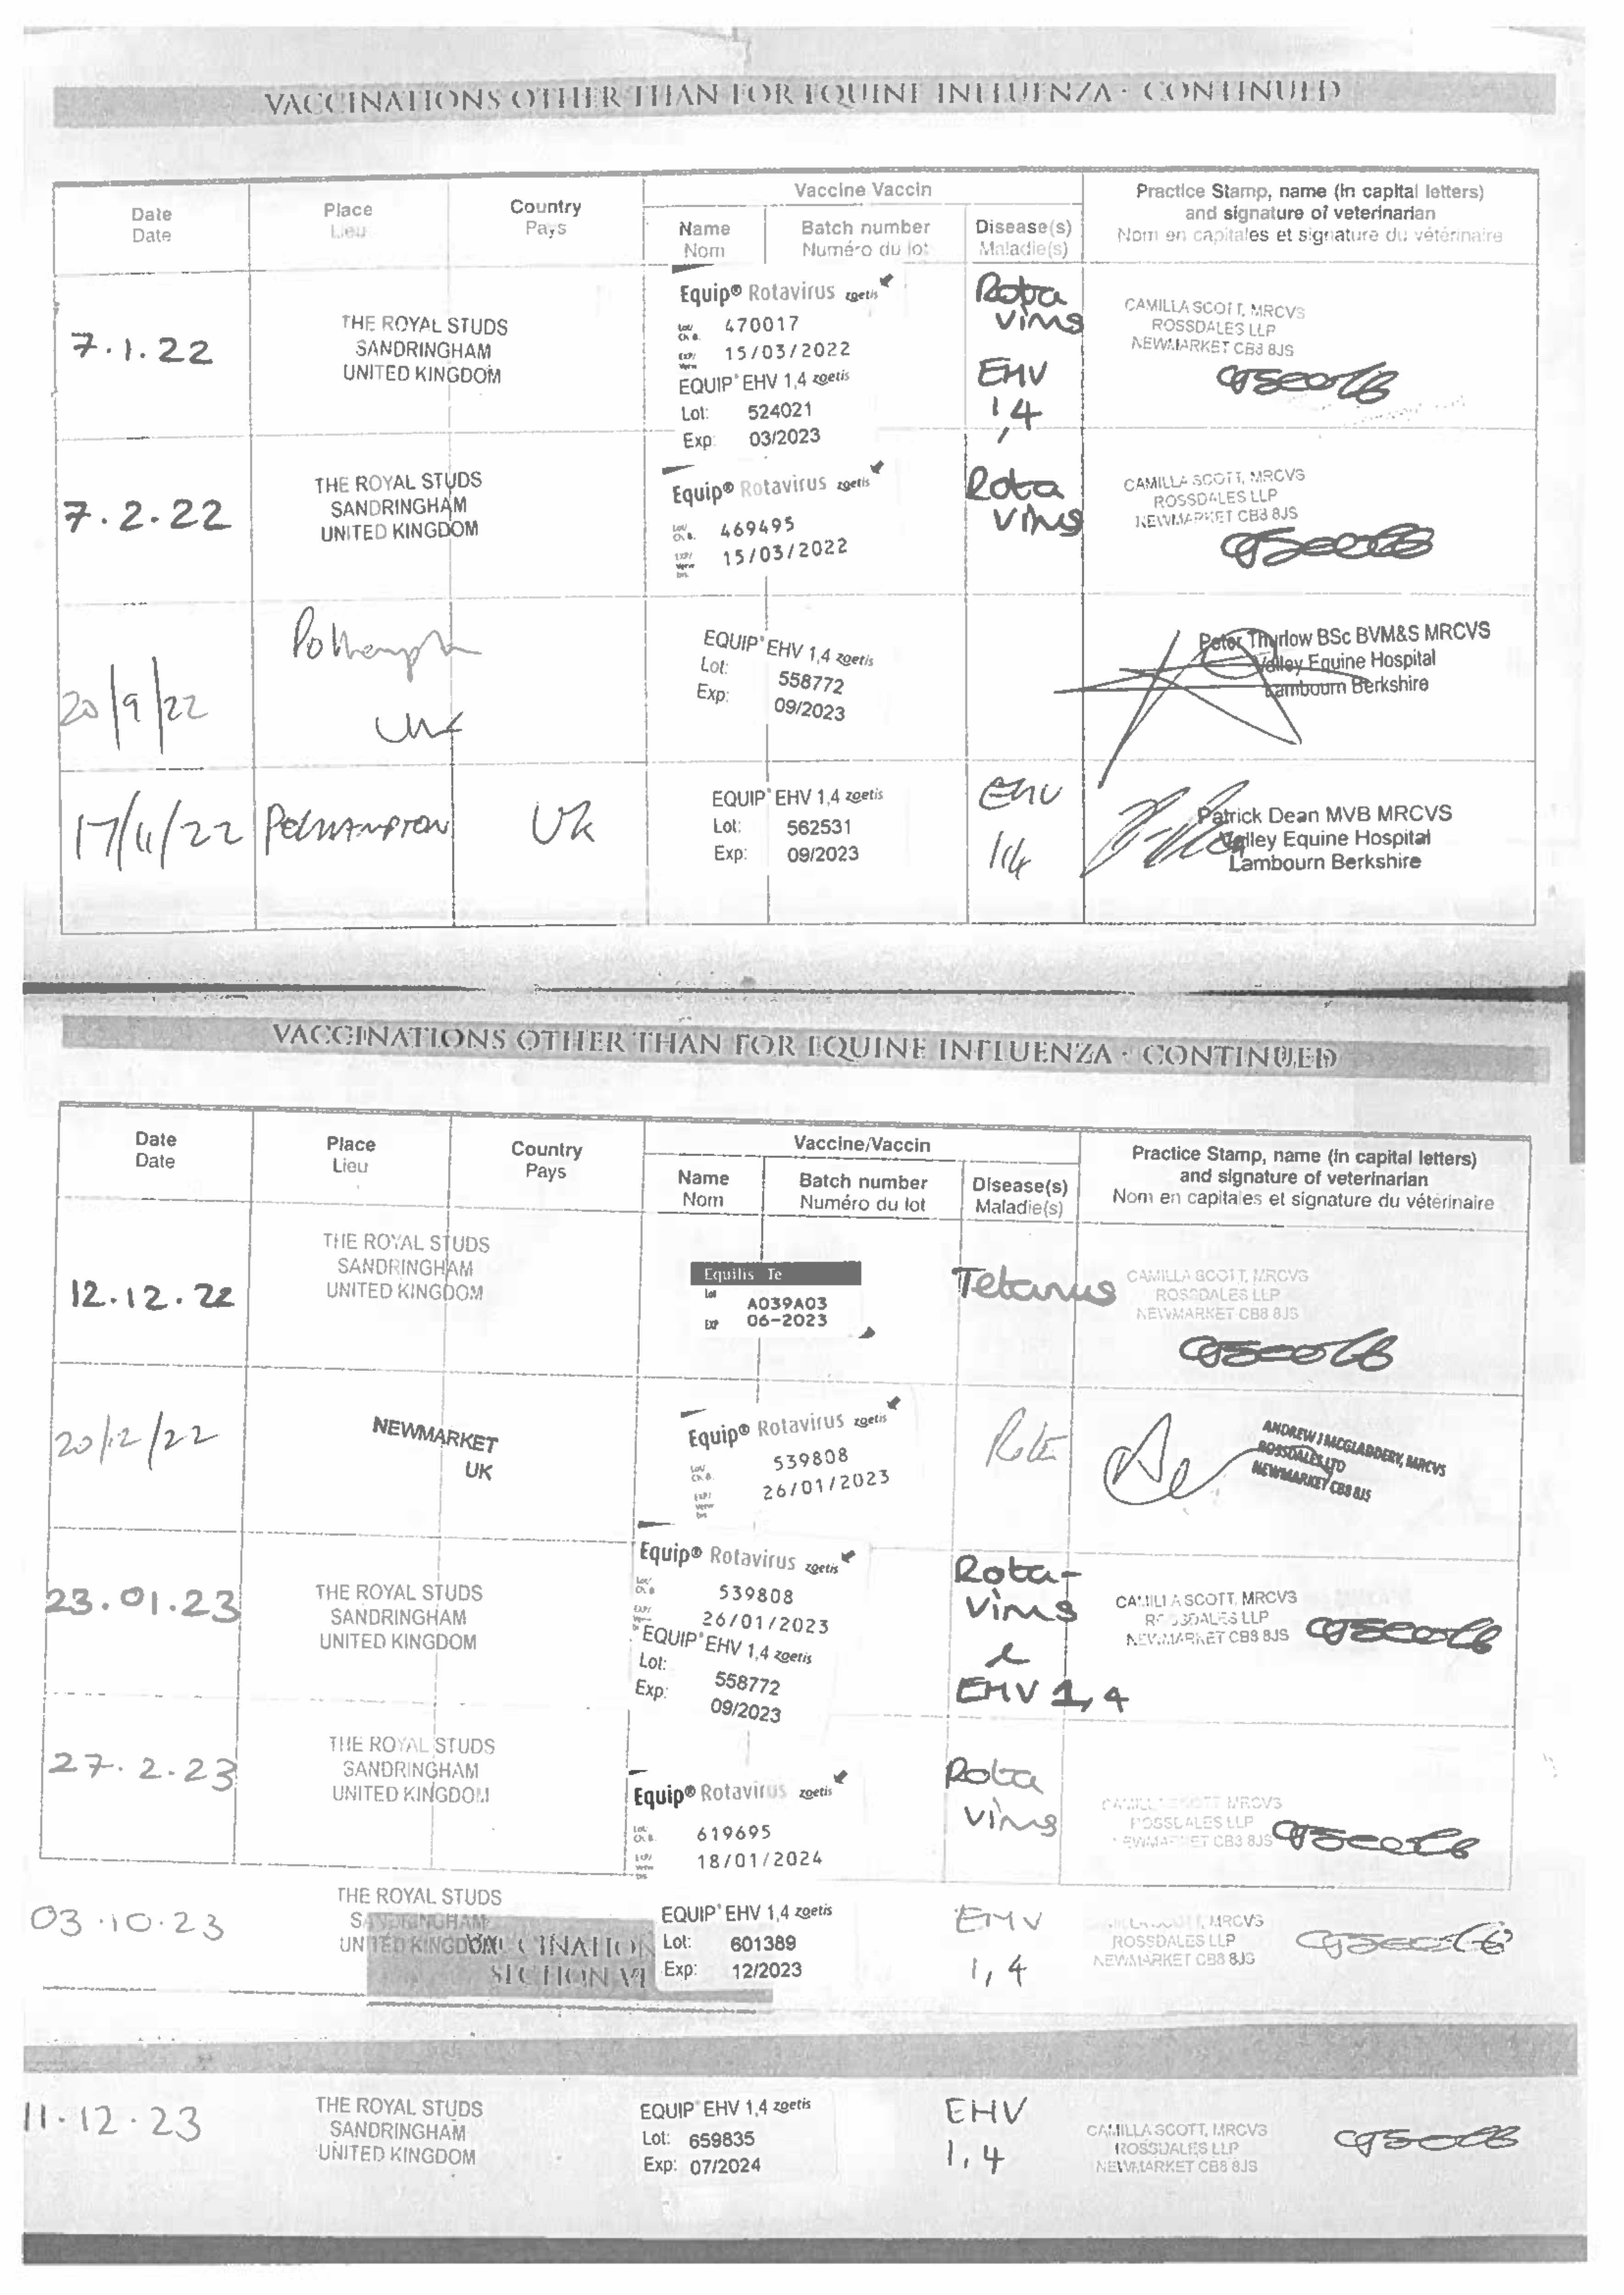 VACCINATIONS OTHER THAN FOR EQUINE INFLUENZA - CONTINUED
Date
Date
Place
Lieu
Country
Pays
Vaccine Vaccin
Name
Nom
Batch number
Numéro du lot
Disease(s)
Maladie(s)
Practice Stamp, name (in capital letters)
and signature of veterinarian
Nom en capitales et signature du vétérinaire
7.1.22
THE ROYAL STUDS
SANDRINGHAM
UNITED KINGDOM
Equip® Rotavirus zoetis
Lot/
Ch.B.
470017
EXP/
Verw
15/03/2022
EQUIP® EHV 1,4 zoetis
Lot: 524021
Exp: 03/2023
Rota
virus
EHV
1,4
CAMILLA SCOTT, MRCVS
ROSSDALES LLP
NEWMARKET CB8 8JS
7.2.22
THE ROYAL STUDS
SANDRINGHAM
UNITED KINGDOM
Equip® Rotavirus zoetis
Lot/
Ch.B.
469495
EXP/
Verw
bis
15/03/2022
Rota
virus
CAMILLA SCOTT, MRCVS
ROSSDALES LLP
NEWMARKET CB8 8JS
20/9/22
Polhampton
UK
EQUIP® EHV 1,4 zoetis
Lot: 558772
Exp: 09/2023
Peter Thurlow BSc BVM&S MRCVS
Valley Equine Hospital
Lambourn Berkshire
17/11/22
POLHAMPTON
UK
EQUIP® EHV 1,4 zoetis
Lot: 562531
Exp: 09/2023
EHV
1/4
Patrick Dean MVB MRCVS
Valley Equine Hospital
Lambourn Berkshire
VACCINATIONS OTHER THAN FOR EQUINE INFLUENZA - CONTINUED
Date
Date
Place
Lieu
Country
Pays
Vaccine/Vaccin
Name
Nom
Batch number
Numéro du lot
Disease(s)
Maladie(s)
Practice Stamp, name (in capital letters)
and signature of veterinarian
Nom en capitales et signature du vétérinaire
12.12.22
THE ROYAL STUDS
SANDRINGHAM
UNITED KINGDOM
Equilis Te
Lot
A039A03
Exp
06-2023
Tetanus
CAMILLA SCOTT, MRCVS
ROSSDALES LLP
NEWMARKET CB8 8JS
20/12/22
NEWMARKET
UK
Equip® Rotavirus zoetis
Lot/
Ch.B.
539808
EXP/
Verw
bis
26/01/2023
Rota
ANDREW J MCGLADDERY, MRCVS
ROSSDALES LTD
NEWMARKET CB8 8JS
23.01.23
THE ROYAL STUDS
SANDRINGHAM
UNITED KINGDOM
Equip® Rotavirus zoetis
Lot/
Ch.B.
539808
EXP/
26/01/2023
EQUIP® EHV 1,4 zoetis
Lot: 558772
Exp: 09/2023
Rota-
virus
&
EHV 1,4
CAMILLA SCOTT, MRCVS
ROSSDALES LLP
NEWMARKET CB8 8JS
27.2.23
THE ROYAL STUDS
SANDRINGHAM
UNITED KINGDOM
Equip® Rotavirus zoetis
Lot/
Ch.B.
619695
EXP/
Verw
bis
18/01/2024
Rota
virus
CAMILLA SCOTT MRCVS
ROSSDALES LLP
NEWMARKET CB8 8JS
03.10.23
THE ROYAL STUDS
SANDRINGHAM
UNITED KINGDOM
SECTION VI
EQUIP® EHV 1,4 zoetis
Lot: 601389
Exp: 12/2023
EHV
1,4
CAMILLA SCOTT, MRCVS
ROSSDALES LLP
NEWMARKET CB8 8JS
11.12.23
THE ROYAL STUDS
SANDRINGHAM
UNITED KINGDOM
EQUIP® EHV 1,4 zoetis
Lot: 659835
Exp: 07/2024
EHV
1,4
CAMILLA SCOTT, MRCVS
ROSSDALES LLP
NEWMARKET CB8 8JS